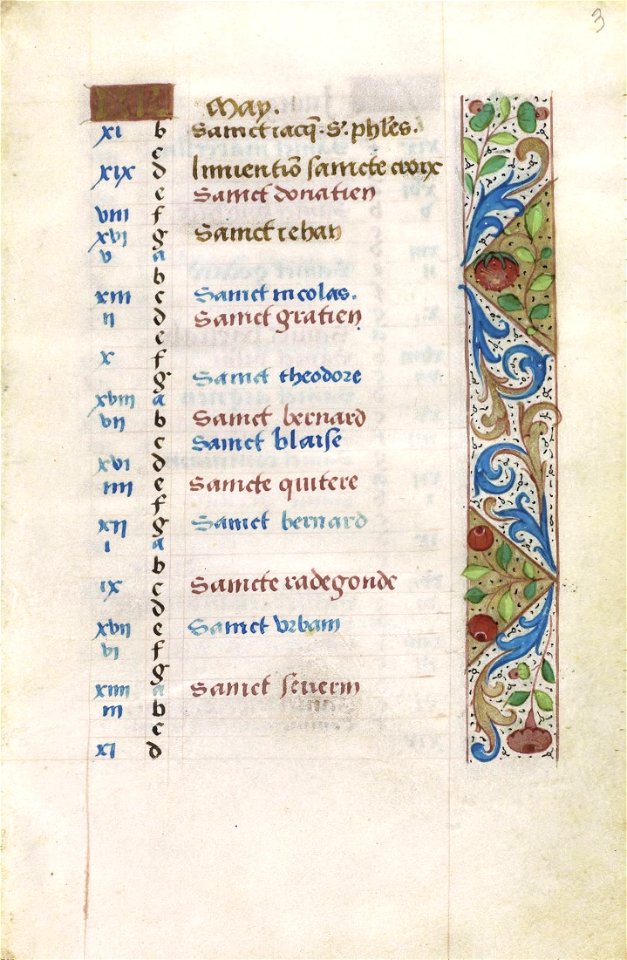 3
KL May.
xi b Sainct iacq̄. St. phles.
c
xix d Linuentiō saincte croix
e Sainct donatien
viii f
xvi g Sainct iehan
v a
b
xiii c Sainct nicolas.
ii d Sainct gratien
e
x f
g Sainct theodore
xviii a
vii b Sainct bernard
c Sainct blaise
xvi d
iiii e Saincte quitere
f
xii g Sainct bernard
i a
b
ix c Saincte radegonde
d
xvii e Sainct vrbain
vi f
g
xiiii a Sainct severin
iii b
c
xi d